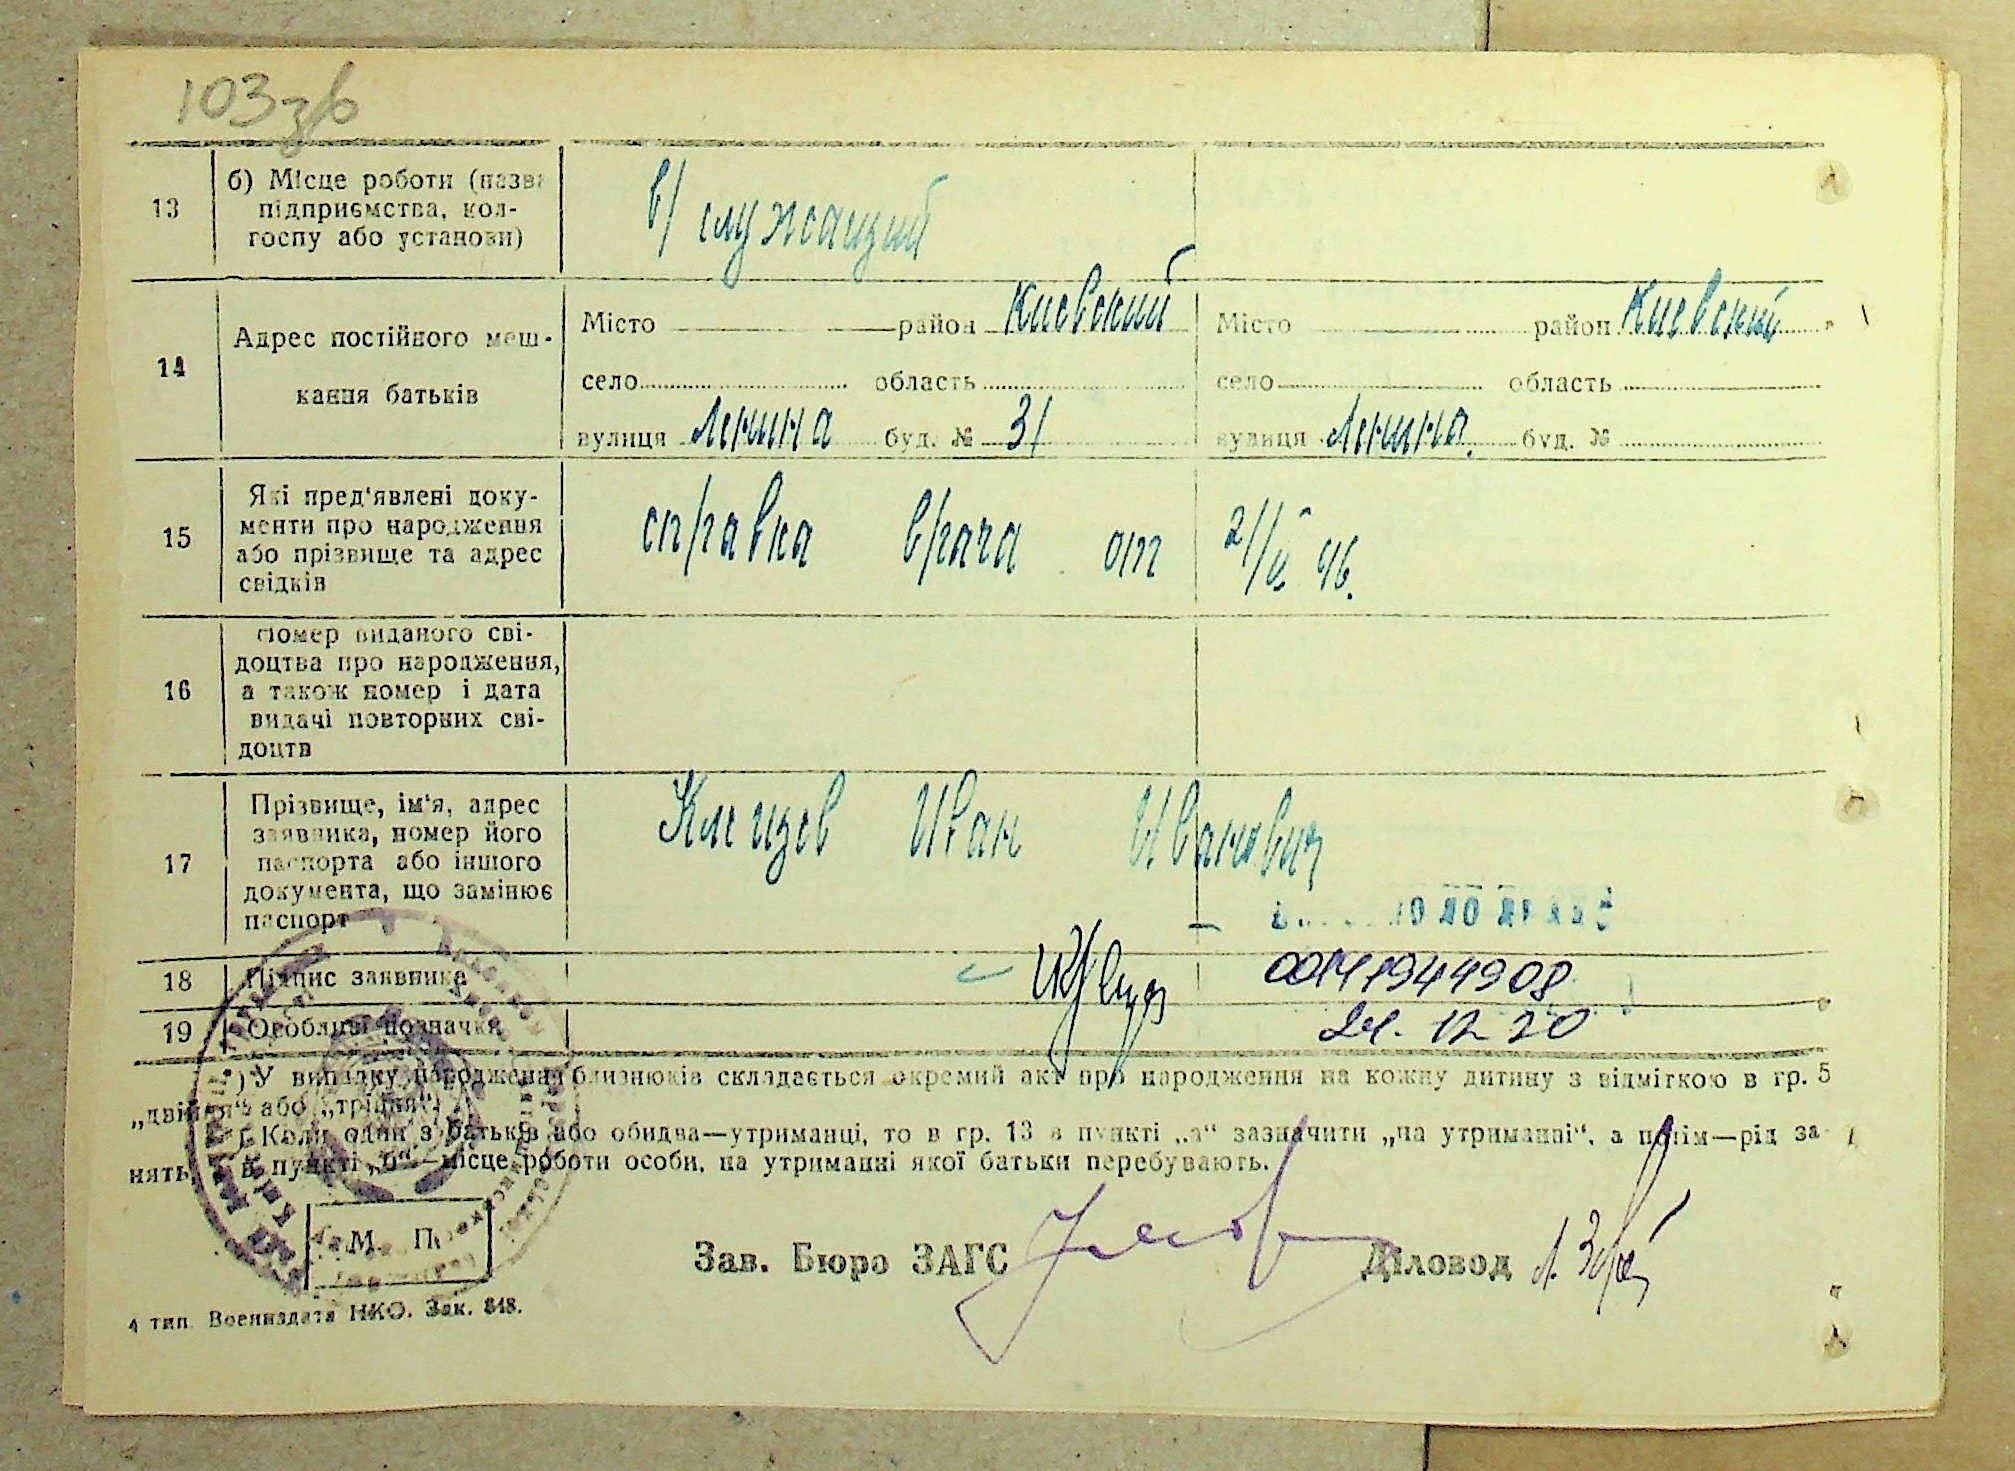 103зв
13
б) Місце роботи (назва
підприємства, кол-
госпу або установи)
в/служащий
14
Адрес постійного меш-
кання батьків
Місто район Киевский
село область
вулиця Ленина буд. № 31
Місто район Киевский
село область
вулиця Ленина. буд. №
15
Які пред'явлені доку-
менти про народження
або прізвище та адрес
свідків
справка врача от 2/ 46.
16
Номер виданого сві-
доцтва про народження,
а також номер і дата
видачі повторних сві-
доцтв
17
Прізвище, ім'я, адрес
заявника, номер його
паспорта або іншого
документа, що замінює
паспорт
Клецов Иван Иванович
18
Підпис заявника
00141944908
19
Особливі позначки
24. 12 20
*) У випадку народження близнюків складається окремий акт про народження на кожну дитину з відміткою в гр. 5
„двійня“ або „трійня“.
Коли один з батьків або обидва—утриманці, то в гр. 13 в пункті „а“ зазначити „на утриманні“, а потім—рід за-
нять, в пункті „б“—місце роботи особи, на утриманні якої батьки перебувають.
М. П.
Зав. Бюро ЗАГС
Діловод
4 тип. Воениздата НКО. Зак. 848.